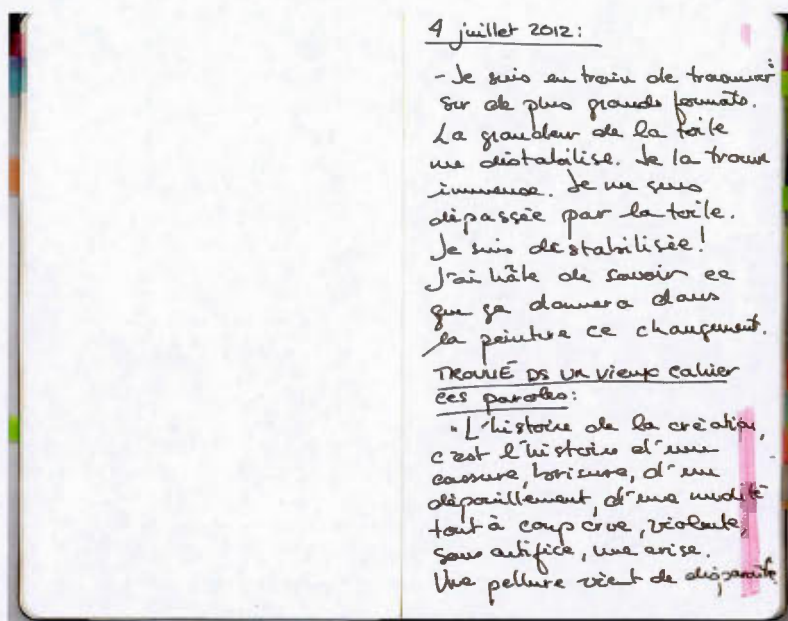 4 juillet 2012:
- Je suis en train de travailler
sur de plus grands formats.
La grandeur de la toile
me déstabilise. Je la trouve
immense. Je me sens
dépassée par la toile.
Je suis déstabilisée!
J'ai hâte de savoir ce
que ça donnera dans
la peinture ce changement.
TROUVÉ DS UN vieux cahier
ces paroles:
"L'histoire de la création,
c'est l'histoire d'une
cassure, brisure, d'un
dépouillement, d'une nudité
tout à coup crue, violente,
sans artifice, une crise.
Une pellure vient de disparaître